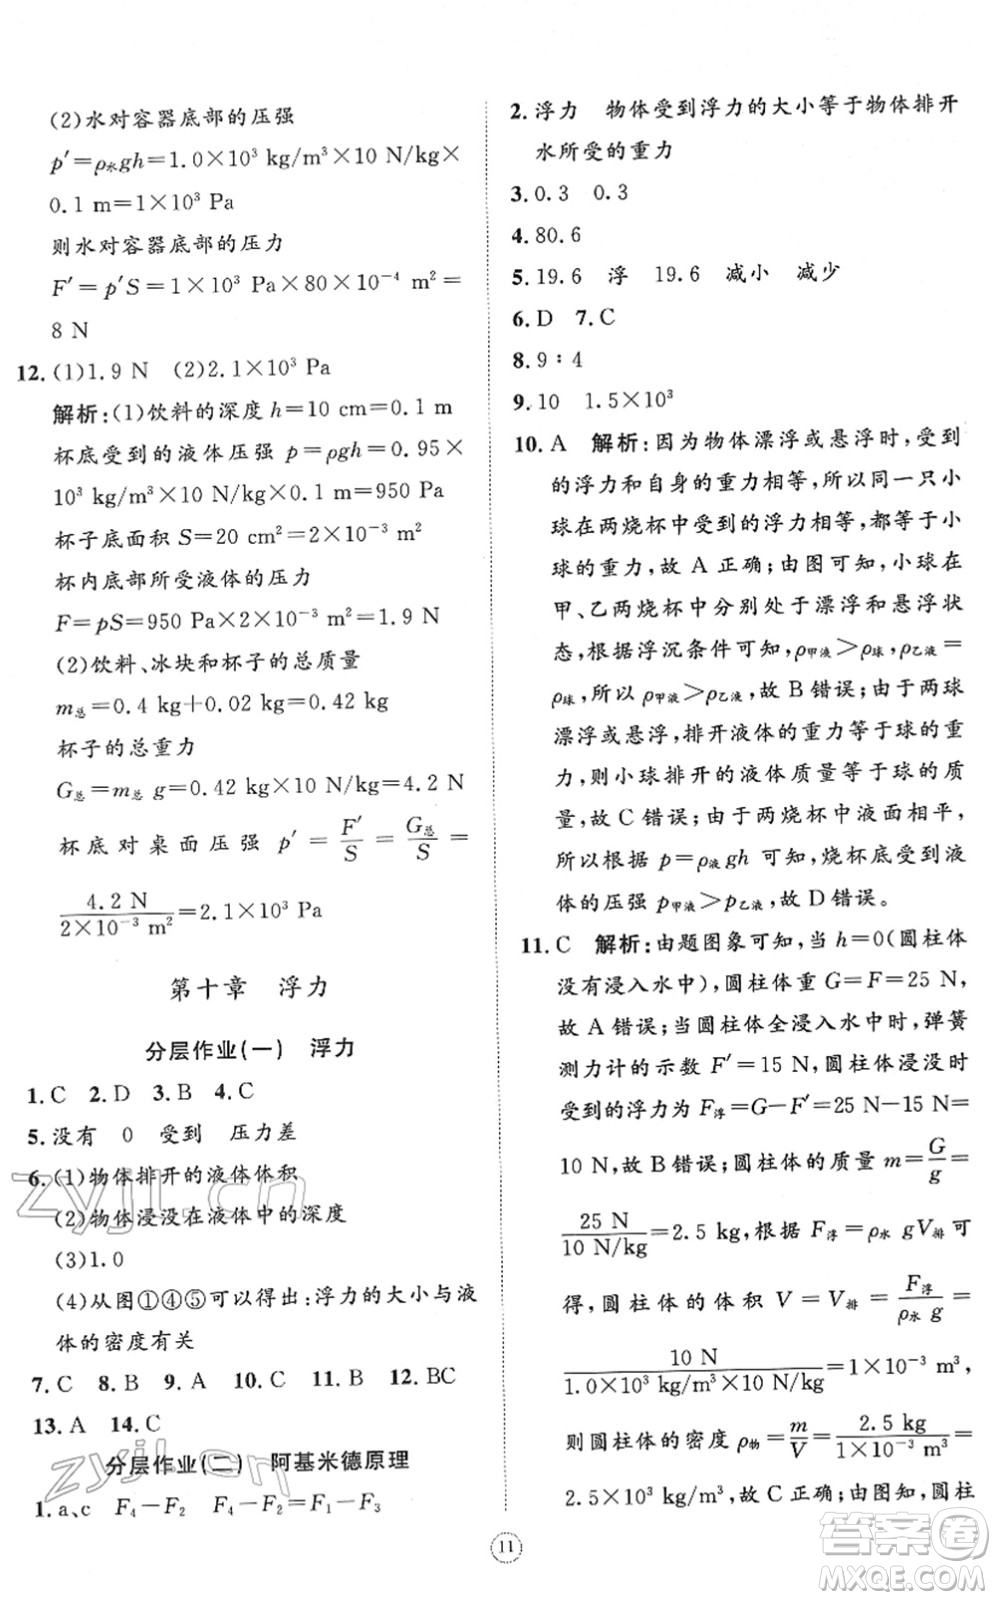 (2)水对容器底部的压强
p′=ρ水gh=1.0×10³ kg/m³×10 N/kg×
0.1 m=1×10³ Pa
则水对容器底部的压力
F′=p′S=1×10³ Pa×80×10⁻⁴ m²=
8 N
12.(1)1.9 N (2)2.1×10³ Pa
解析:(1)饮料的深度 h=10 cm=0.1 m
杯底受到的液体压强 p=ρgh=0.95×
10³ kg/m³×10 N/kg×0.1 m=950 Pa
杯子底面积 S=20 cm²=2×10⁻³ m²
杯内底部所受液体的压力
F=pS=950 Pa×2×10⁻³ m²=1.9 N
(2)饮料、冰块和杯子的总质量
m总=0.4 kg+0.02 kg=0.42 kg
杯子的总重力
G总=m总 g=0.42 kg×10 N/kg=4.2 N
杯底对桌面压强 p′=F′/S=G总/S=
4.2 N/2×10⁻³ m²=2.1×10³ Pa
第十章 浮力
分层作业(一) 浮力
1.C 2.D 3.B 4.C
5.没有 0 受到 压力差
6.(1)物体排开的液体体积
(2)物体浸没在液体中的深度
(3)1.0
(4)从图①④⑤可以得出:浮力的大小与液
体的密度有关
7.C 8.B 9.A 10.C 11.B 12.BC
13.A 14.C
分层作业(二) 阿基米德原理
1.a、c F₄−F₂ F₄−F₂=F₁−F₃
2.浮力 物体受到浮力的大小等于物体排开
水所受的重力
3.0.3 0.3
4.80.6
5.19.6 浮 19.6 减小 减少
6.D 7.C
8.9∶4
9.10 1.5×10³
10.A 解析:因为物体漂浮或悬浮时,受到
的浮力和自身的重力相等,所以同一只小
球在两烧杯中受到的浮力相等,都等于小
球的重力,故 A 正确;由图可知,小球在
甲、乙两烧杯中分别处于漂浮和悬浮状
态,根据浮沉条件可知,ρ甲液>ρ球,ρ乙液=
ρ球,所以 ρ甲液>ρ乙液,故 B 错误;由于两球
漂浮或悬浮,排开液体的重力等于球的重
力,则小球排开的液体质量等于球的质
量,故 C 错误;由于两烧杯中液面相平,
所以根据 p=ρ液 gh 可知,烧杯底受到液
体的压强 p甲液>p乙液,故 D 错误。
11.C 解析:由题图象可知,当 h=0(圆柱体
没有浸入水中),圆柱体重 G=F=25 N,
故 A 错误;当圆柱体全浸入水中时,弹簧
测力计的示数 F′=15 N,圆柱体浸没时
受到的浮力为 F浮=G−F′=25 N−15 N=
10 N,故 B 错误;圆柱体的质量 m=G/g=
25 N/10 N/kg=2.5 kg,根据 F浮=ρ水 gV排可
得,圆柱体的体积 V=V排=F浮/ρ水 g=
10 N/1.0×10³ kg/m³×10 N/kg=1×10⁻³ m³,
则圆柱体的密度 ρ物=m/V=2.5 kg/1×10⁻³ m³=
2.5×10³ kg/m³,故 C 正确;由图知,圆柱
11
zyjl.cn
zyjl.cn
答案圈
MXQE.COM